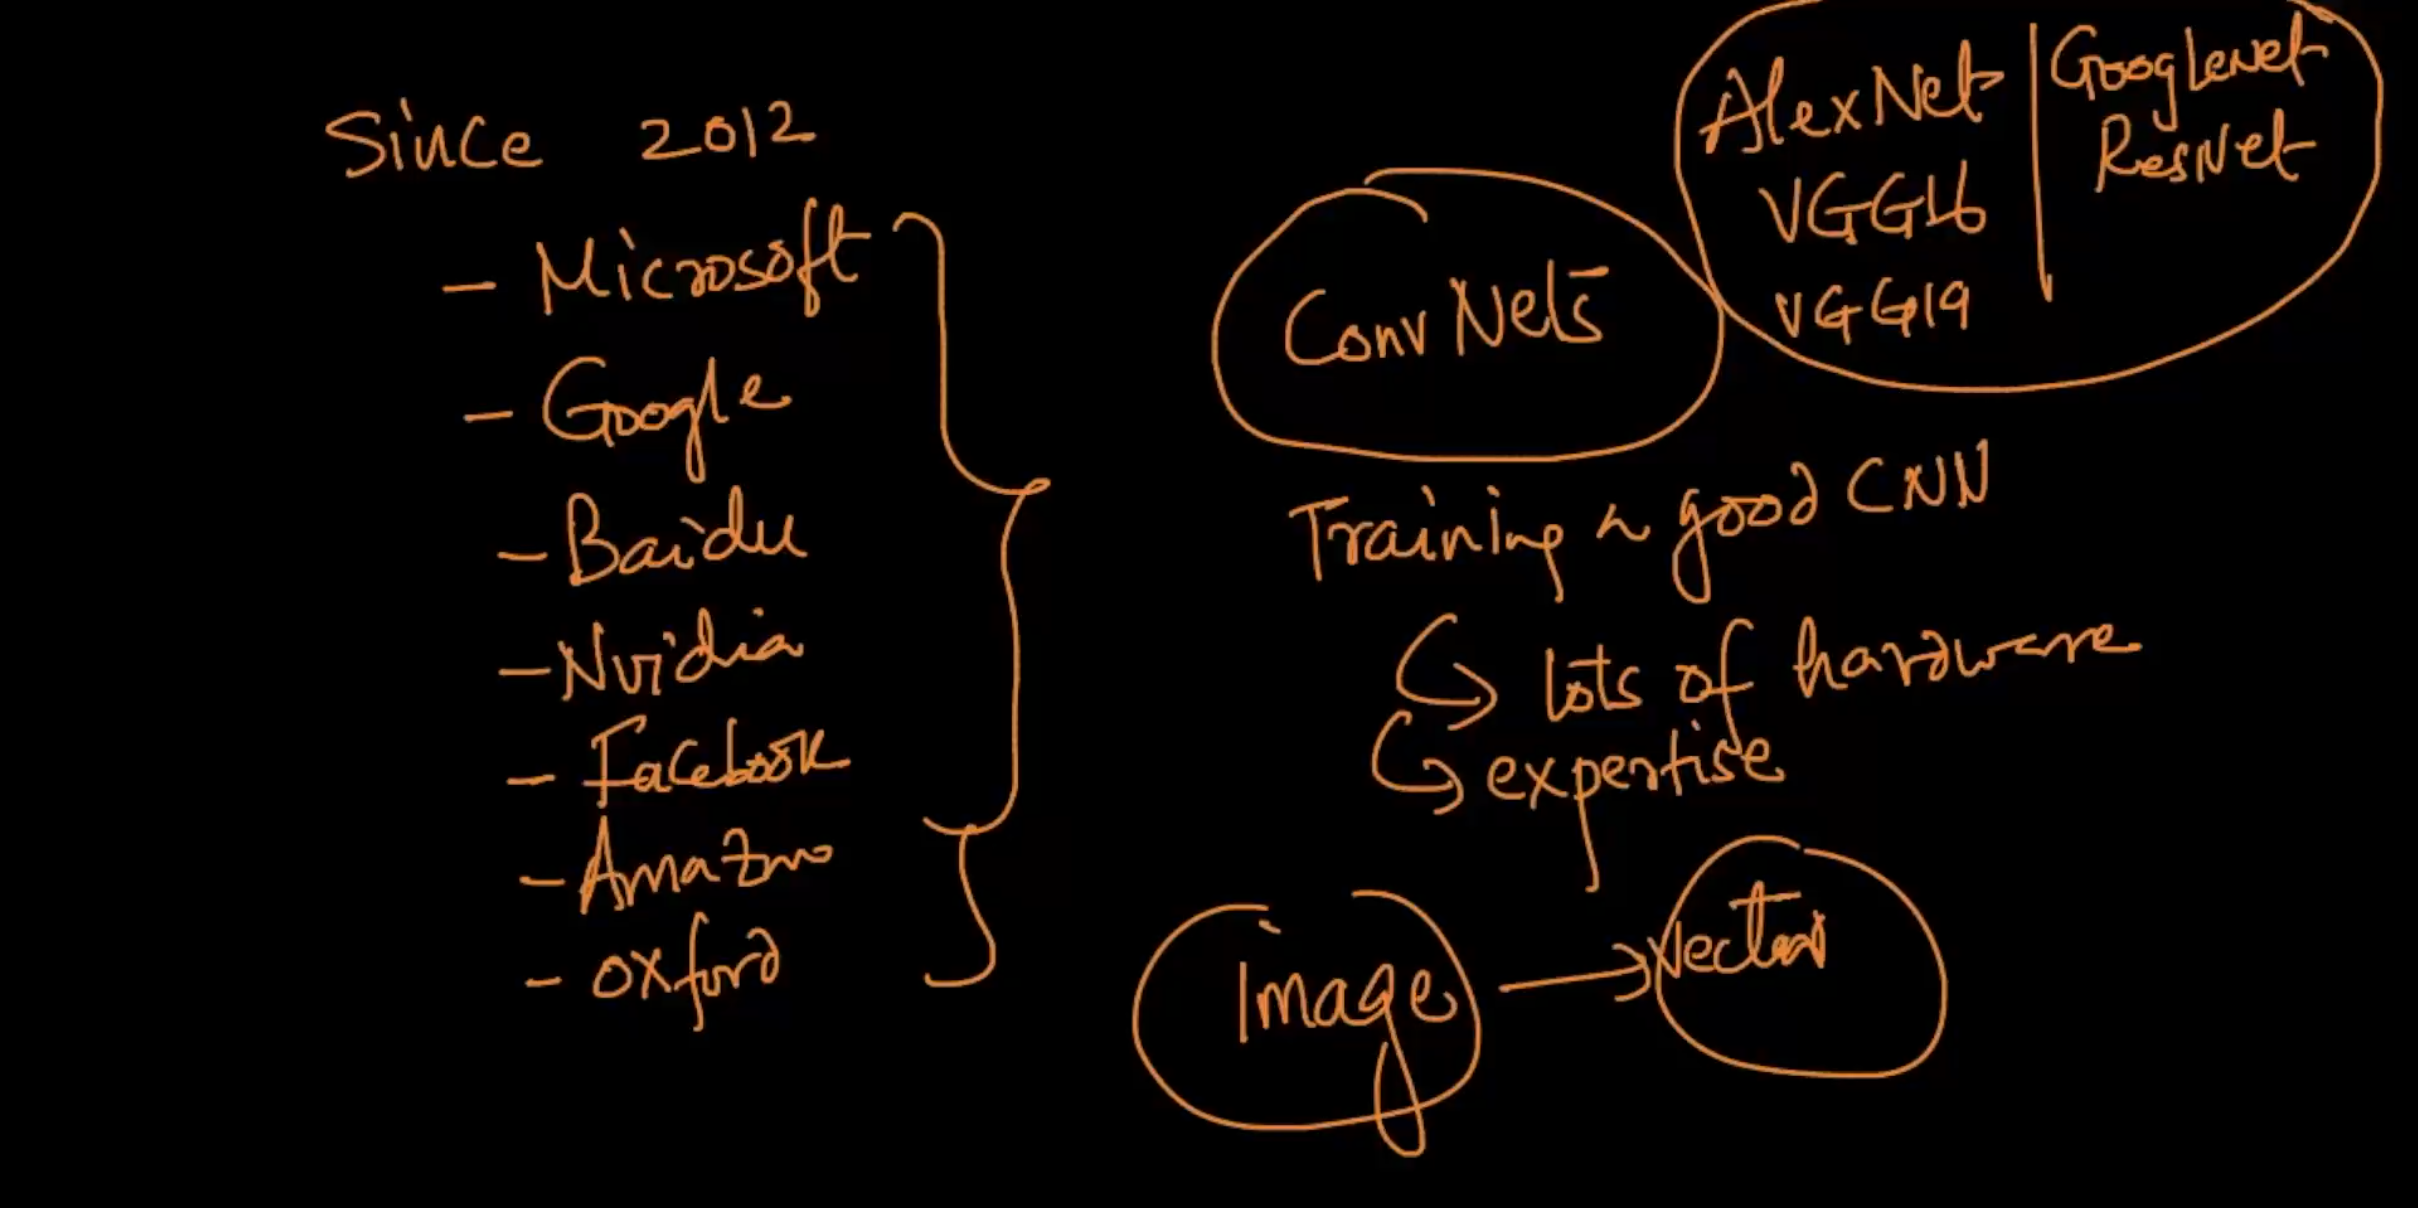 Since 2012
- Microsoft
- Google
- Baidu
- Nvidia
- Facebook
- Amazon
- Oxford
ConvNets
AlexNet
VGG16
VGG19
GoogleNet
ResNet
Training a good CNN
lots of hardware
expertise
Image → Vector